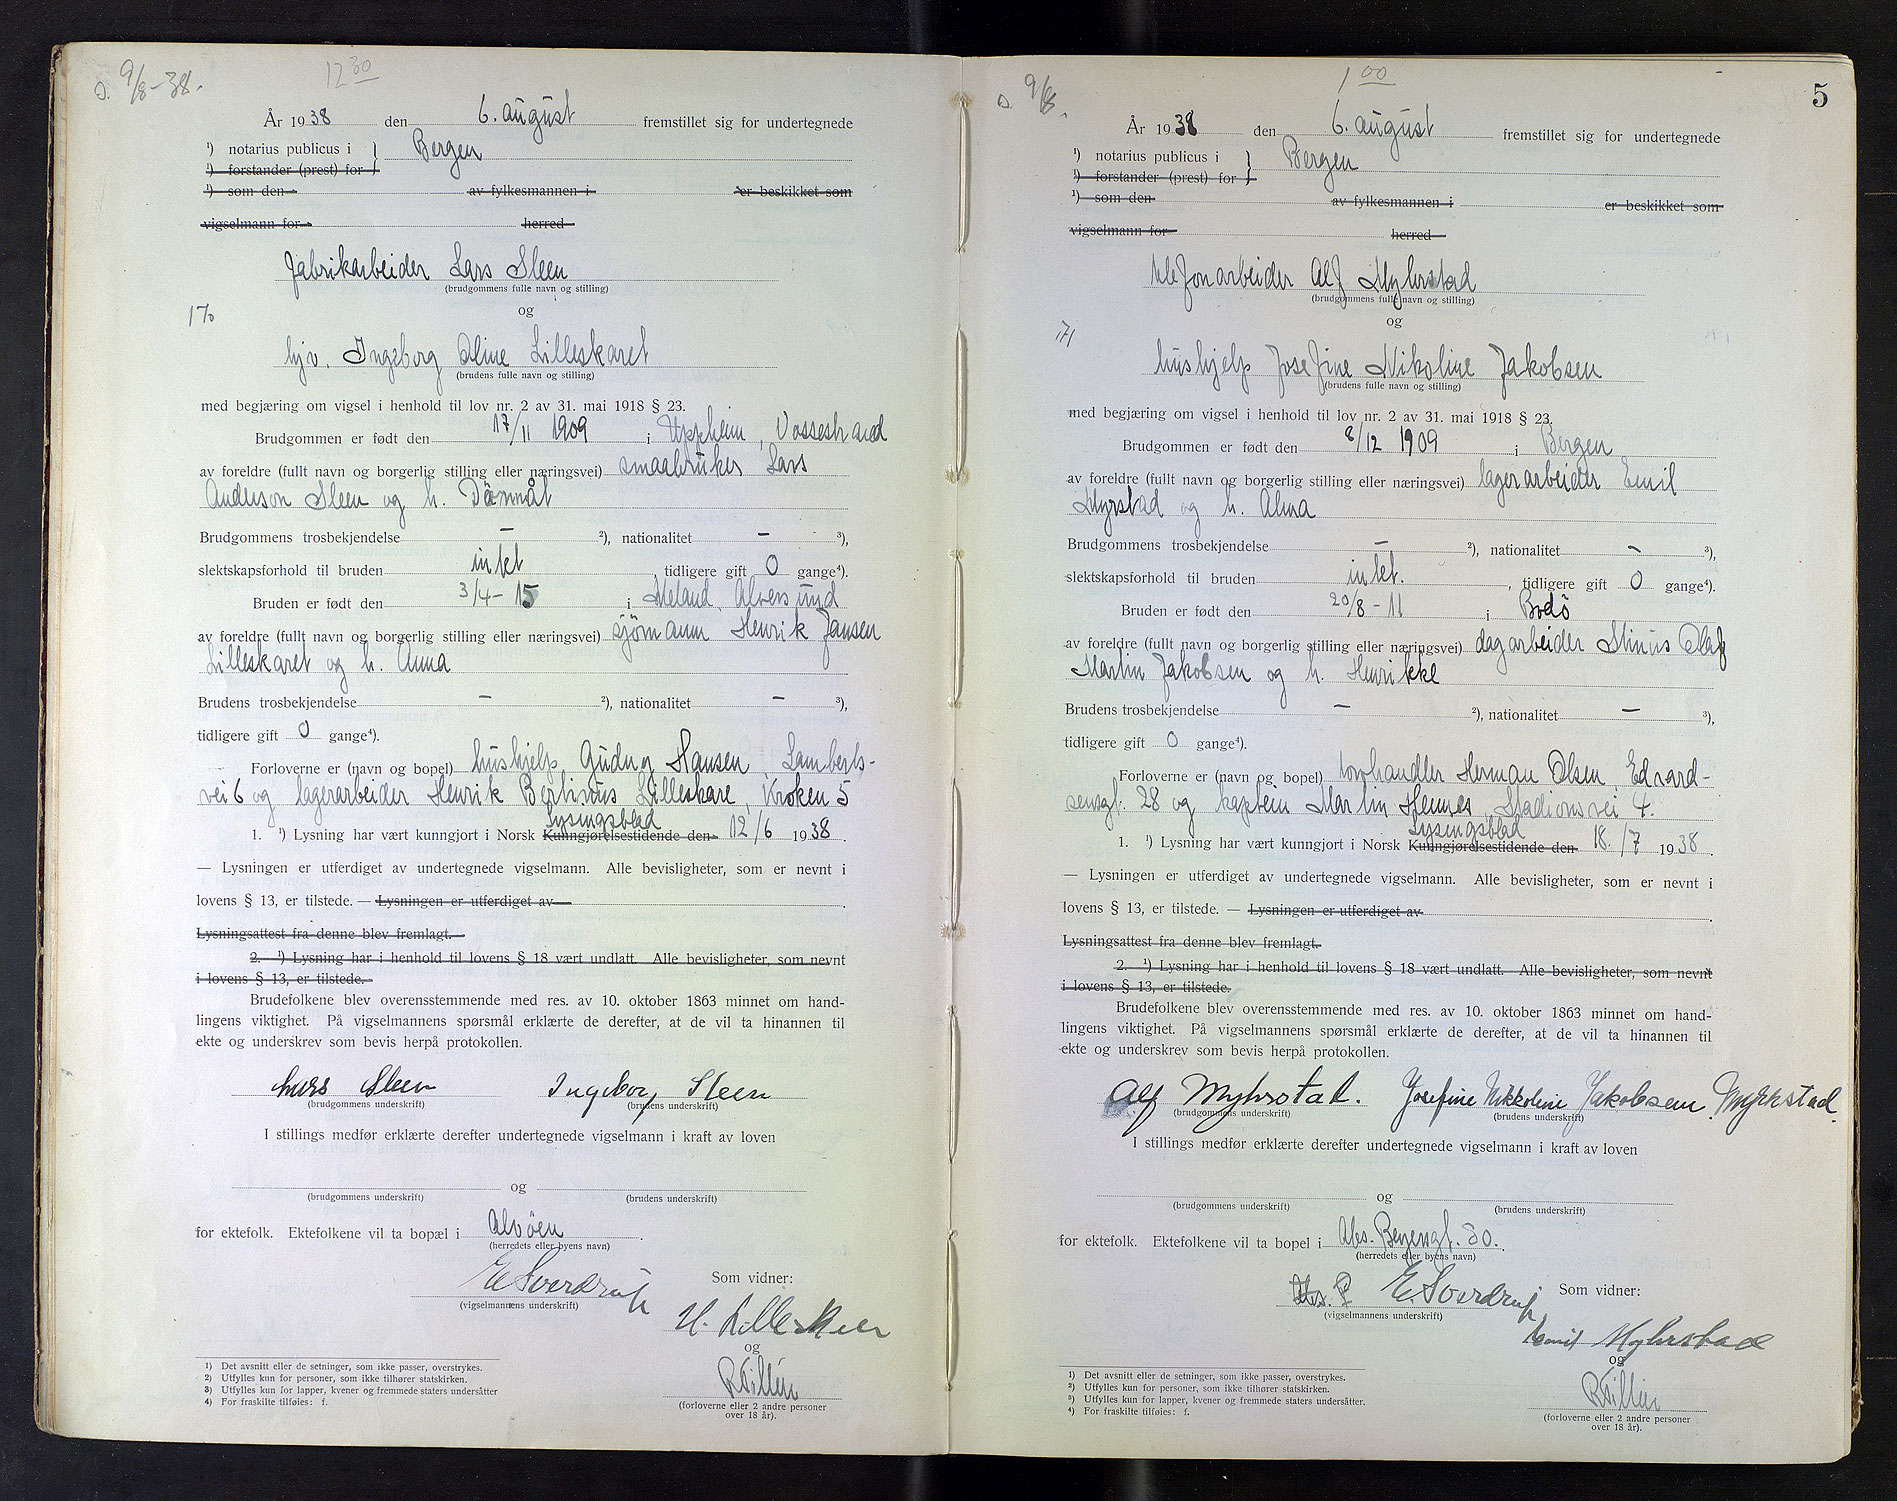 9/8-38.
12 30
År 1938 den 6. august fremstillet sig for undertegnede
¹) notarius publicus i } Bergen
¹) forstander (prest) for
¹) som den av fylkesmannen i er beskikket som
vigselmann for herred
fabrikarbeider Lars Sleen
(brudgommens fulle navn og stilling)
170 og
hjv. Ingeborg Oline Lilleskaret
(brudens fulle navn og stilling)
med begjæring om vigsel i henhold til lov nr. 2 av 31. mai 1918 § 23.
Brudgommen er født den 17/11 1909 i Oppheim, Vossestrand
av foreldre (fullt navn og borgerlig stilling eller næringsvei) smaabruker Lars
Anderson Sleen og h.
Brudgommens trosbekjendelse – ²), nationalitet – ³),
slektskapsforhold til bruden intet, tidligere gift 0 gange⁴).
Bruden er født den 3/4-15 i Meland, Alversund
av foreldre (fullt navn og borgerlig stilling eller næringsvei) sjömann Henrik Jansen
Lilleskaret og h. Anna
Brudens trosbekjendelse – ²), nationalitet – ³),
tidligere gift 0 gange⁴).
Forloverne er (navn og bopel) hushjelp Gudny Hansen, Lamberts-
vei 6 og lagerarbeider Henrik Bertinius Lilleskare, Kroken 5
Lysingsblad
1. ¹) Lysning har vært kunngjort i Norsk Kunngjørelsestidende den 12/6 1938.
— Lysningen er utferdiget av undertegnede vigselmann. Alle bevisligheter, som er nevnt i
lovens § 13, er tilstede. — Lysningen er utferdiget av .
Lysningsattest fra denne blev fremlagt.
2. ¹) Lysning har i henhold til lovens § 18 vært undlatt. Alle bevisligheter, som nevnt
i lovens § 13, er tilstede.
Brudefolkene blev overensstemmende med res. av 10. oktober 1863 minnet om hand-
lingens viktighet. På vigselmannens spørsmål erklærte de derefter, at de vil ta hinannen til
ekte og underskrev som bevis herpå protokollen.
Lars Sleen Ingeborg Sleen
(brudgommens underskrift) (brudens underskrift)
I stillings medfør erklærte derefter undertegnede vigselmann i kraft av loven
og
(brudgommens underskrift) (brudens underskrift)
for ektefolk. Ektefolkene vil ta bopæl i Alvöen.
(herredets eller byens navn)
E Sverdrup Som vidner:
(vigselmannens underskrift)
H. Lilleskare
og
(forloverne eller 2 andre personer
over 18 år).
1) Det avsnitt eller de setninger, som ikke passer, overstrykes.
2) Utfylles kun for personer, som ikke tilhører statskirken.
3) Utfylles kun for lapper, kvener og fremmede staters undersåtter
4) For fraskilte tilføies: f.
9/8.
1 00
5
År 1938 den 6. august fremstillet sig for undertegnede
¹) notarius publicus i } Bergen
¹) forstander (prest) for
¹) som den av fylkesmannen i er beskikket som
vigselmann for herred
telefonarbeider Alf Myhrstad
(brudgommens fulle navn og stilling)
171 og
hushjelp Josefine Nikoline Jakobsen
(brudens fulle navn og stilling)
med begjæring om vigsel i henhold til lov nr. 2 av 31. mai 1918 § 23.
Brudgommen er født den 8/12 1909 i Bergen
av foreldre (fullt navn og borgerlig stilling eller næringsvei) lagerarbeider Emil
Myrstad og h. Alma
Brudgommens trosbekjendelse – ²), nationalitet – ³),
slektskapsforhold til bruden intet., tidligere gift 0 gange⁴).
Bruden er født den 20/8-11 i Bodö
av foreldre (fullt navn og borgerlig stilling eller næringsvei) dagarbeider Olaf
Martin Jakobsen og h. Henrikke
Brudens trosbekjendelse – ²), nationalitet – ³),
tidligere gift 0 gange⁴).
Forloverne er (navn og bopel) Herman Olsen, Edvard-
sensgt. 28 og kaptein Martin Hennes, Stadionsvei 4.
Lysingsblad
1. ¹) Lysning har vært kunngjort i Norsk Kunngjørelsestidende den 18/7 1938.
— Lysningen er utferdiget av undertegnede vigselmann. Alle bevisligheter, som er nevnt i
lovens § 13, er tilstede. — Lysningen er utferdiget av .
Lysningsattest fra denne blev fremlagt.
2. ¹) Lysning har i henhold til lovens § 18 vært undlatt. Alle bevisligheter, som nevnt
i lovens § 13, er tilstede.
Brudefolkene blev overensstemmende med res. av 10. oktober 1863 minnet om hand-
lingens viktighet. På vigselmannens spørsmål erklærte de derefter, at de vil ta hinannen til
ekte og underskrev som bevis herpå protokollen.
Alf Myhrstad. Josefine Nikkoline Jakobsen Myhrstad.
(brudgommens underskrift) (brudens underskrift)
I stillings medfør erklærte derefter undertegnede vigselmann i kraft av loven
og
(brudgommens underskrift) (brudens underskrift)
for ektefolk. Ektefolkene vil ta bopel i Abs. Beyersgt. 30.
(herredets eller byens navn)
E. Sverdrup Som vidner:
(vigselmannens underskrift)
Emil Myhrstad
og
(forloverne eller 2 andre personer
over 18 år).
1) Det avsnitt eller de setninger, som ikke passer, overstrykes.
2) Utfylles kun for personer, som ikke tilhører statskirken.
3) Utfylles kun for lapper, kvener og fremmede staters undersåtter.
4) For fraskilte tilføies: f.